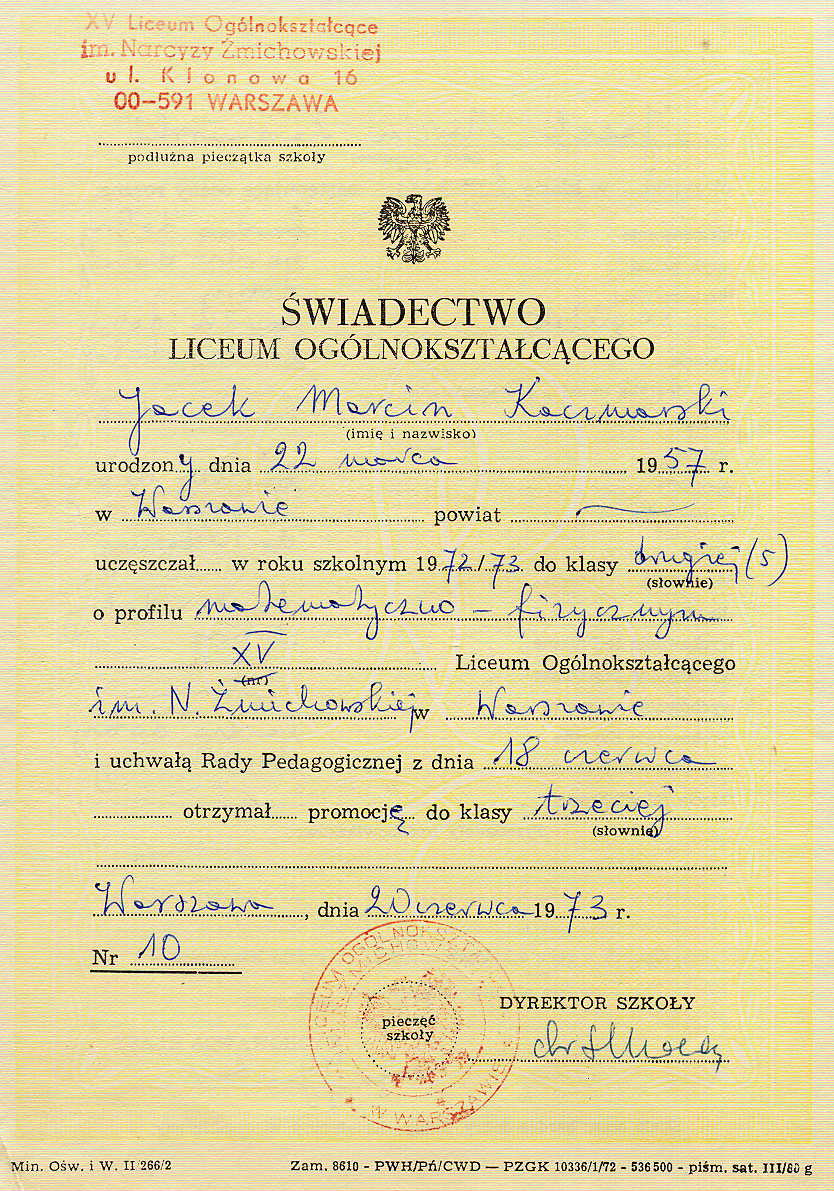 XV Liceum Ogólnokształcące
im. Narcyzy Żmichowskiej
ul. Klonowa 16
00-591 WARSZAWA
podłużna pieczątka szkoły
ŚWIADECTWO
LICEUM OGÓLNOKSZTAŁCĄCEGO
Jacek Marcin Kaczmarski
(imię i nazwisko)
urodzony dnia 22 marca 1957 r.
w Warszawie powiat —
uczęszczał w roku szkolnym 1972/73 do klasy drugiej (5)
(słownie)
o profilu matematyczno - fizycznym
XV Liceum Ogólnokształcącego
(nr)
im. N. Żmichowskiej w Warszawie
i uchwałą Rady Pedagogicznej z dnia 18 czerwca
otrzymał promocję do klasy trzeciej
(słownie)
Warszawa, dnia 20 czerwca 1973 r.
Nr 10
DYREKTOR SZKOŁY
pieczęć
szkoły
W WARSZAWIE
Min. Ośw. i W. II/266/2 Zam. 8610 - PWH/Pń/CWD — PZGK 10336/1/72 - 536500 - piśm. sat. III/80 g